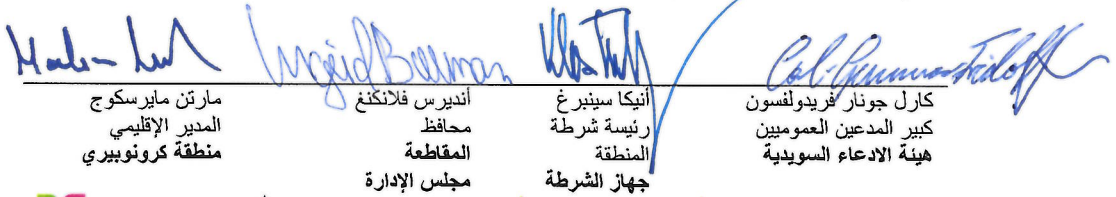 كارل جونار فريدولفسون
كبير المدعين العموميين
هيئة الادعاء السويدية
أنيكا سينبرغ
رئيسة شرطة
المنطقة
جهاز الشرطة
أنديرس فلانكنغ
محافظ
المقاطعة
مجلس الإدارة
مارتن مايرسكوج
المدير الإقليمي
منطقة كرونوبيري